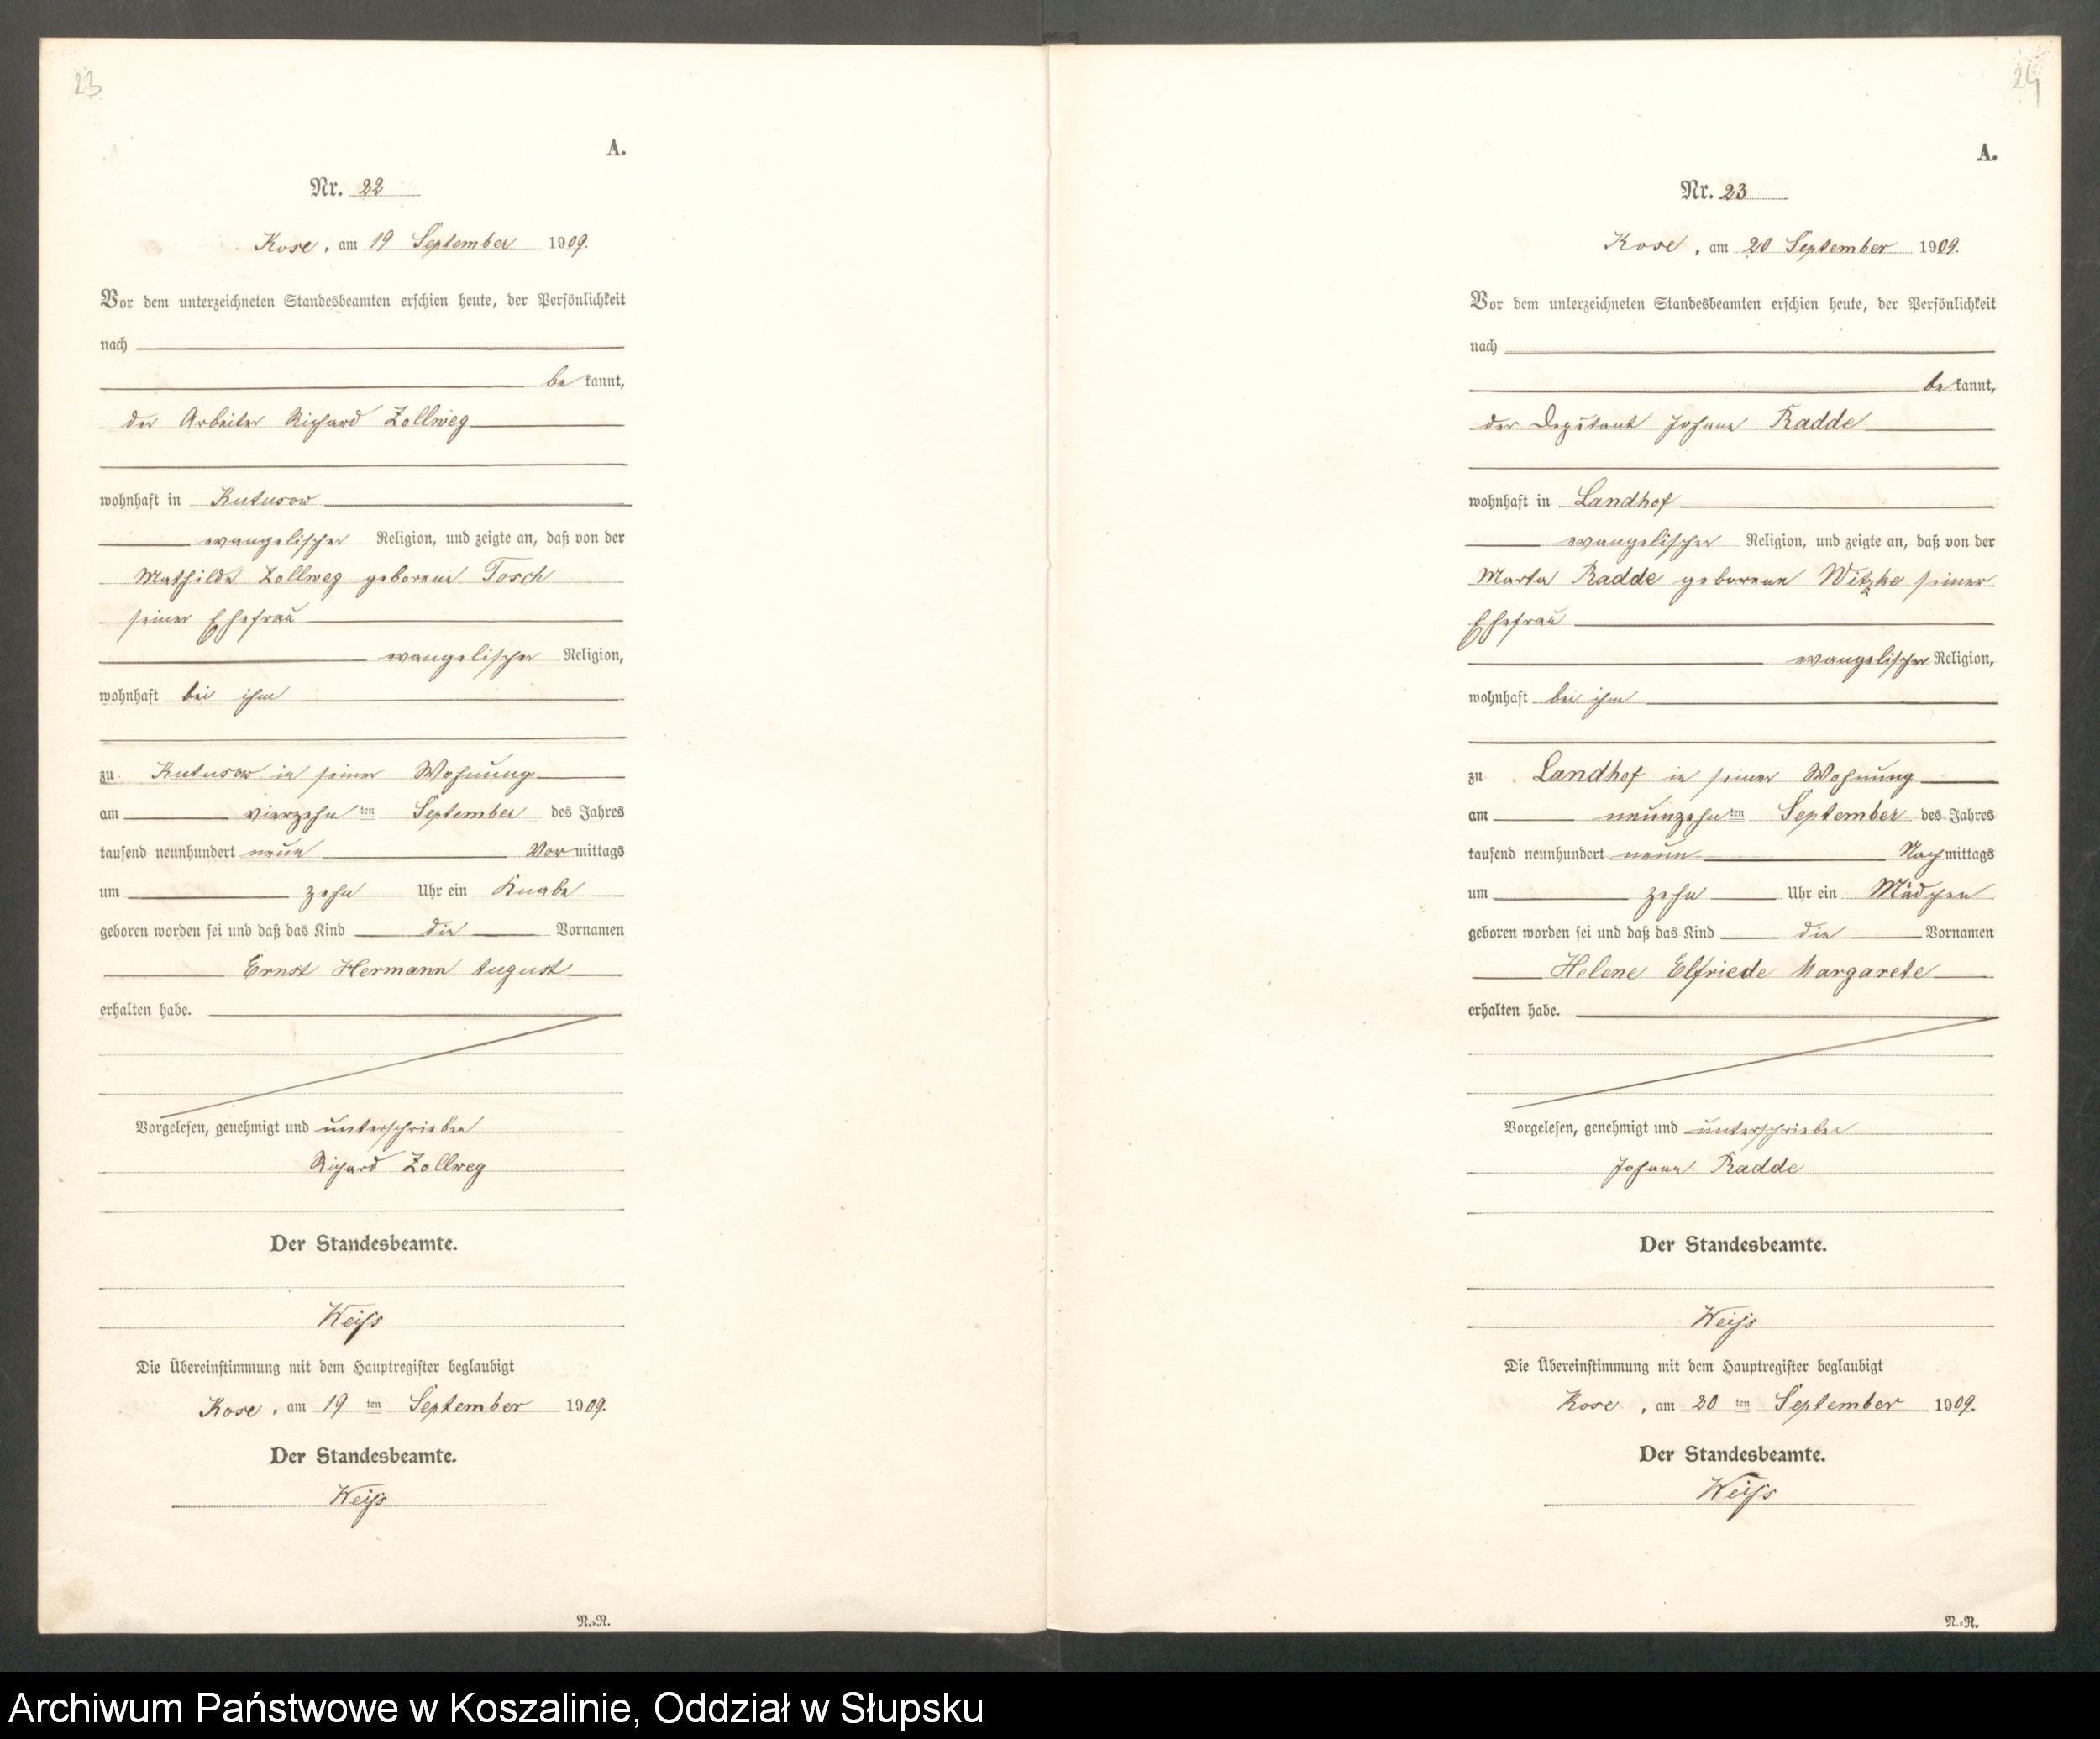 23
A.
Nr. 22
Kose, am 19 September 1909.
Vor dem unterzeichneten Standesbeamten erschien heute, der Persönlichkeit
nach
be kannt,
der Arbeiter Richard Zollweg
wohnhaft in Kutusow
evangelischer Religion, und zeigte an, daß von der
Mathilde Zollweg geborene Tosch
seiner Ehefrau
evangelischer Religion,
wohnhaft bei ihm
zu Kutusow in seiner Wohnung
am vierzehn ten September des Jahres
tausend neunhundert neun Vor mittags
um zehn Uhr ein Knabe
geboren worden sei und daß das Kind die Vornamen
Ernst Hermann August
erhalten habe.
Vorgelesen, genehmigt und unterschrieben
Richard Zollweg
Der Standesbeamte.
Weiß
Die Übereinstimmung mit dem Hauptregister beglaubigt
Kose, am 19 ten September 1909.
Der Standesbeamte.
Weiß
N.=R.
24
A.
Nr. 23
Kose, am 20 September 1909.
Vor dem unterzeichneten Standesbeamten erschien heute, der Persönlichkeit
nach
be kannt,
der Deputant Johann Radde
wohnhaft in Landhof
evangelischer Religion, und zeigte an, daß von der
Marta Radde geborene Witzke seiner
Ehefrau
evangelischer Religion,
wohnhaft bei ihm
zu Landhof in seiner Wohnung
am neunzehn ten September des Jahres
tausend neunhundert neun Nach mittags
um zehn Uhr ein Mädchen
geboren worden sei und daß das Kind die Vornamen
Helene Elfriede Margarete
erhalten habe.
Vorgelesen, genehmigt und unterschrieben
Johann Radde
Der Standesbeamte.
Weiß
Die Übereinstimmung mit dem Hauptregister beglaubigt
Kose, am 20 ten September 1909.
Der Standesbeamte.
Weiß
N.=R.
Archiwum Państwowe w Koszalinie, Oddział w Słupsku